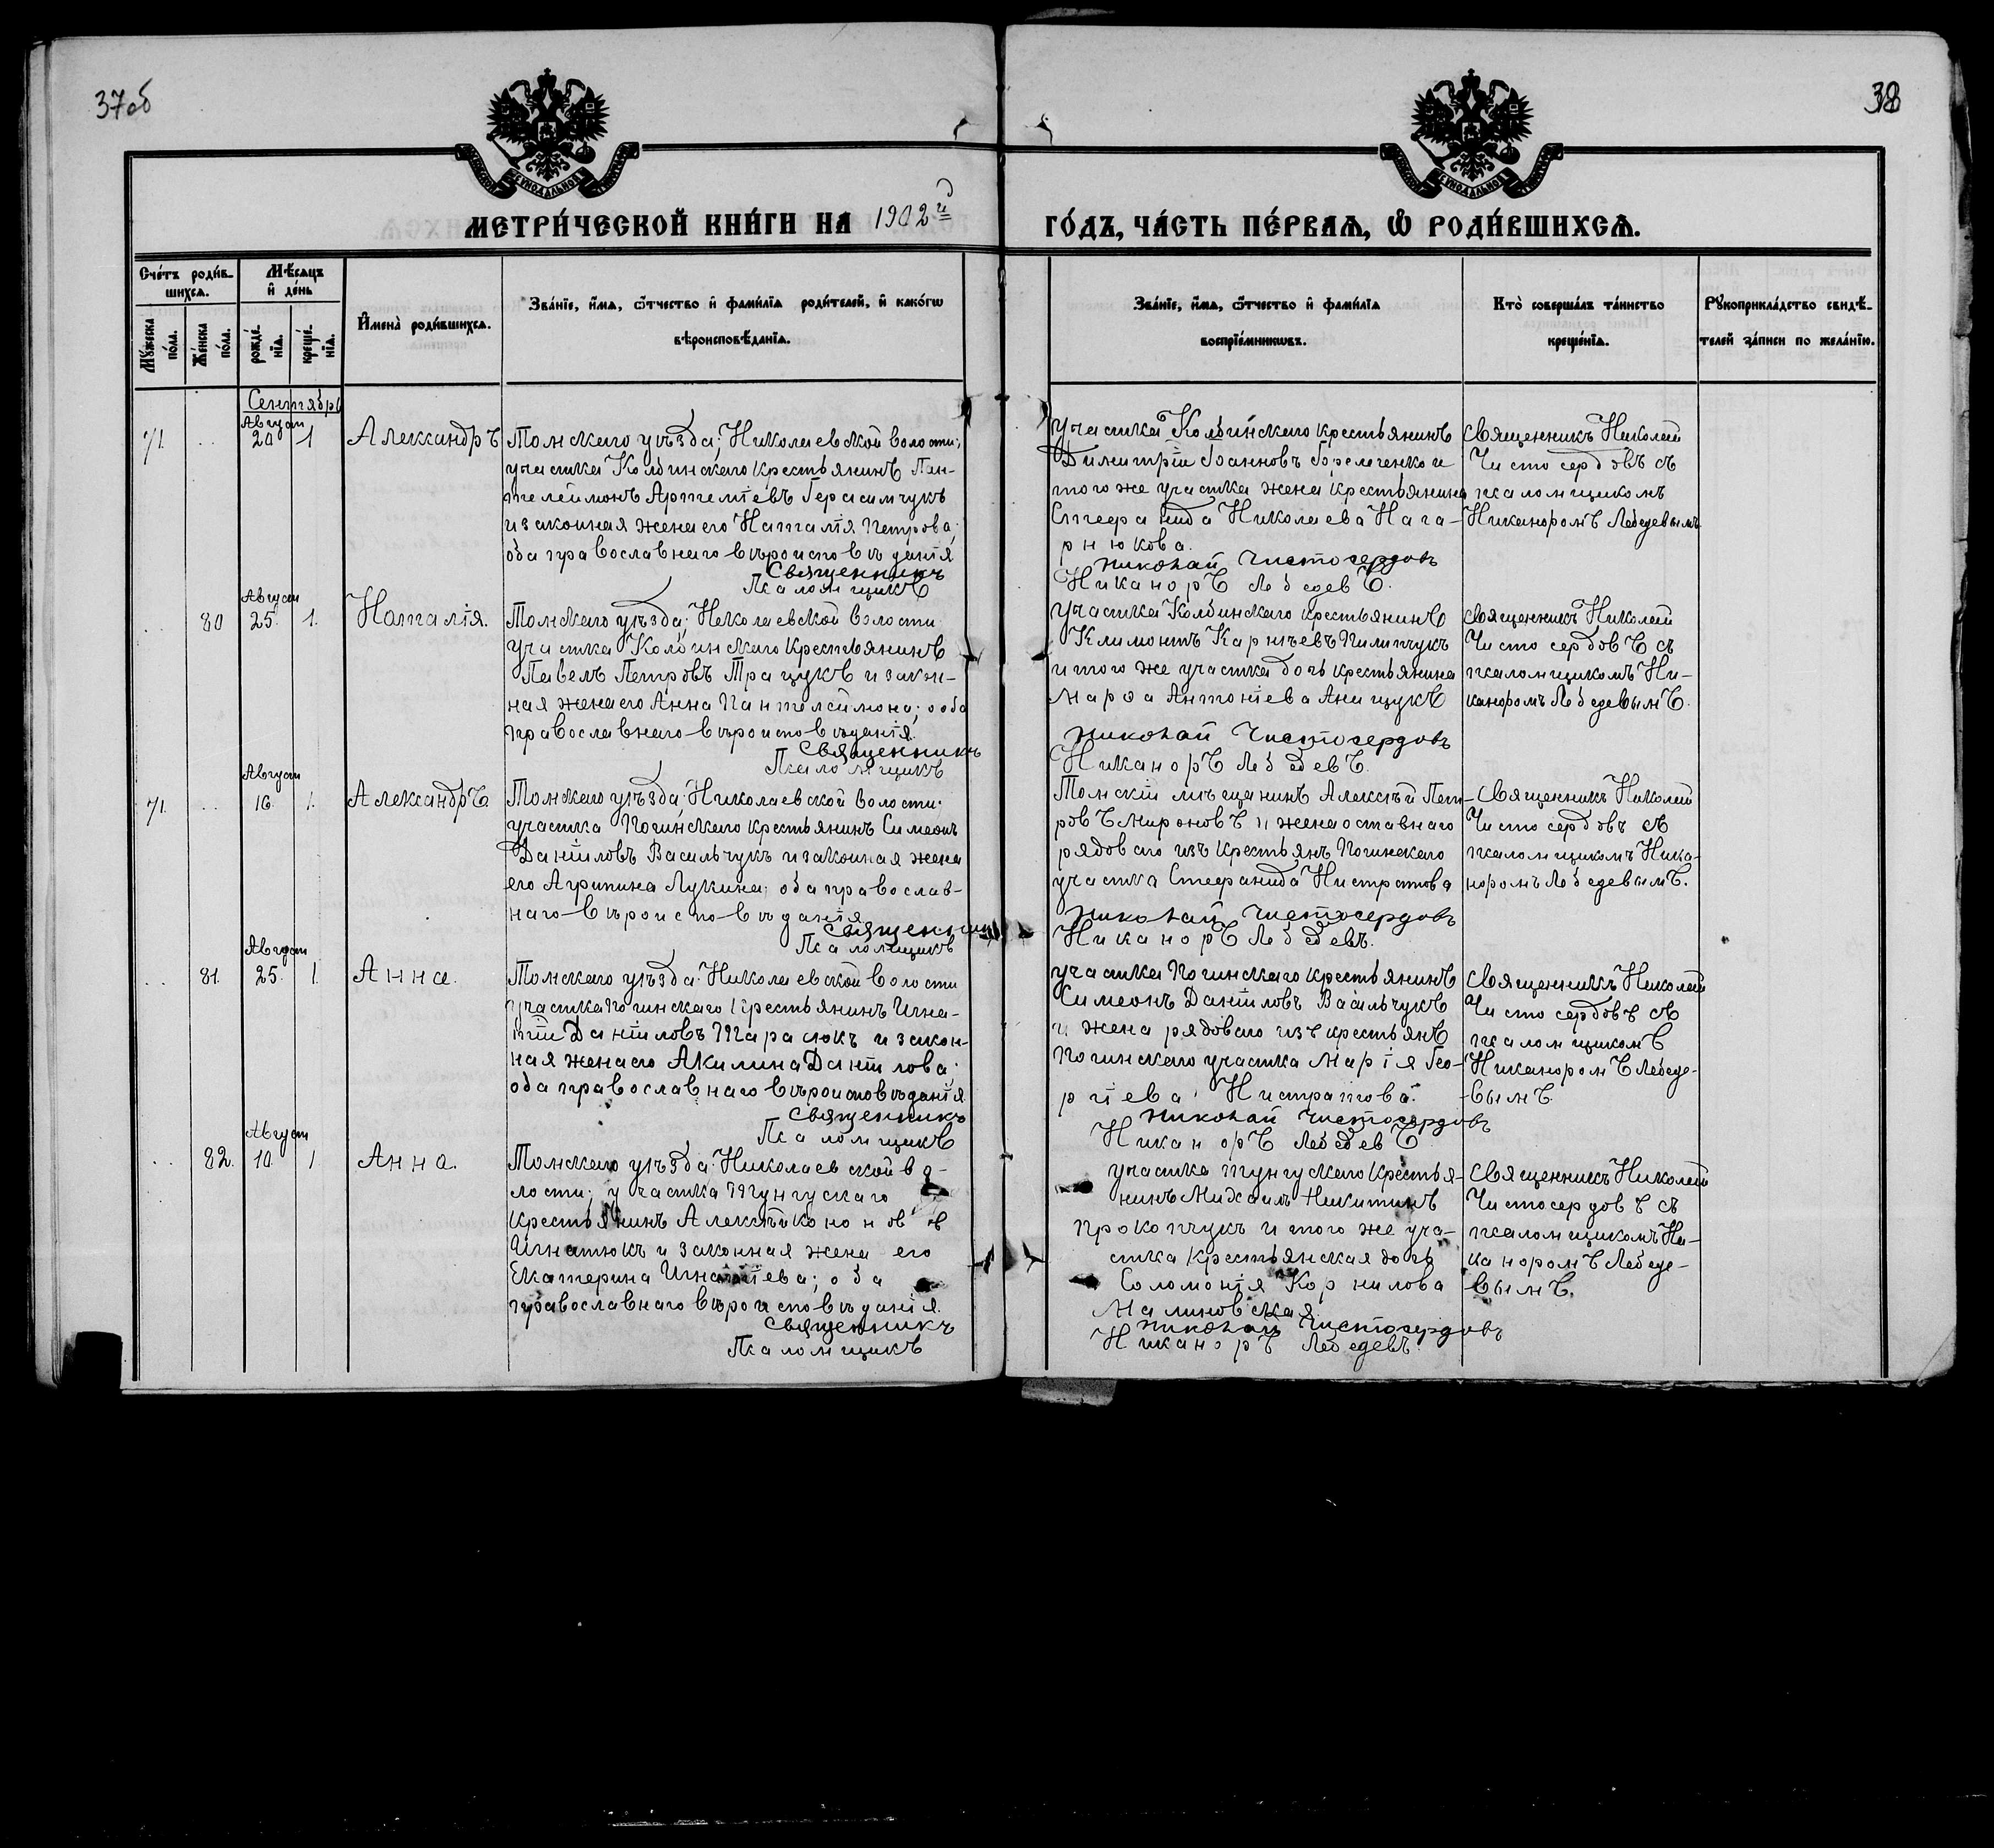 37об
38
МЕТРИ́ЧЕСКОЙ КНИ́ГИ НА 1902й
ГО́ДЪ, ЧА́СТЬ ПЕ́РВАѦ, Ѡ РОДИ́ВШИХСѦ.
Сче́тъ роди́в-
шихсѧ.
Мѣ́сѧцъ
и҆ де́нь
Му́жеска
по́ла.
Же́нска
по́ла.
рожде́-
нїѧ.
креще́-
нїѧ.
И҆мена̀ роди́вшихсѧ.
Зва́нїе, и҆́мѧ, ѻ҆́тчество и҆ фами́лїѧ роди́телей, и҆ како́гѡ
вѣроисповѣ́данїѧ.
Зва́нїе, и҆́мѧ, ѻ҆́тчество и҆ фами́лїѧ
воспрїе́мникѡвъ.
Кто̀ соверша́лъ та́инство
креще́нїѧ.
Рꙋкоприкла́дство свидѣ́-
телей за́писи по жела́нїю.
Сентябрь
Август
71. .. 20 1 Александръ
Томскаго уѣзда; Николаевской волости;
участка Колбинскаго крестьянинъ Пан-
телеймонъ Артеміевъ Герасимчукъ
и законная жена его Наталія Петрова;
оба православнаго вѣроисповѣданія
Священникъ
Псаломщикъ
участка Колбинскаго крестьянинъ
Димитрій Іоанновъ Горельченко и
того же участка жена крестьянина
Стефанида Николаева Нага-
рнюкова.
Николай Чистосердовъ
Никаноръ Лебедевъ.
Священникъ Николай
Чистосердовъ съ
псаломщикомъ
Никаноромъ Лебедевымъ
Август
.. 80 25. 1. Наталія.
Томскаго уѣзда; Николаевской волости
участка Колбинскаго крестьянинъ
Павелъ Петровъ Трацукъ и закон-
ная жена его Анна Пантелеймона; ооба
православнаго вѣроисповѣданія.
Священникъ
Псаломщикъ
участка Колбинскаго крестьянинъ
Климонтъ Карнѣевъ Пилипчукъ
и того же участка дочь крестьянина
Марѳа Антоніева Анищукъ
Николай Чистосердовъ
Никаноръ Лебедевъ.
Священникъ Николай
Чистосердовъ съ
псаломщикомъ Ни-
каноромъ Лебедевымъ.
Август
71. .. 16. 1. Александръ
Томскаго уѣзда; Николаевской волости.
участка Погинскаго крестьянинъ Симеонъ
Даніиловъ Васильчукъ и законная жена
его Агрипина Лукина; оба православ-
наго вѣроисповѣданія
Священникъ
Псаломщикъ
Томскій мѣщанинъ Алексѣй Пет-
ровъ Мироновъ и жена оставнаго
рядоваго изъ крестьянъ Погинскаго
участка Стефанида Нистратова
Николай Чистосердовъ
Никаноръ Лебедевъ.
Священникъ Николай
Чистосердовъ съ
псаломщикомъ Ника-
норомъ Лебедевымъ.
Август
.. 81. 25. 1. Анна.
Томскаго уѣзда Николаевской волости
участка Погинскаго крестьянинъ Игна-
тій Даніиловъ Тарасюкъ и закон-
ная жена его Акилина Даніилова.
оба православнаго вѣроисповѣданія
Священникъ
Псаломщикъ
участка Погинскаго крестьянинъ
Симеонъ Даніиловъ Васильчукъ
и жена рядоваго изъ крестьянъ
Погинскаго участка Марія Гео-
ргіева Нистратова.
Николай Чистосердовъ
Никаноръ Лебедевъ
Священникъ Николай
Чистосердовъ съ
псаломщикомъ
Никаноромъ Лебеде-
вымъ.
Август
.. 82. 10. 1 Анна.
Томскаго уѣзда Николаевской во-
лости; участка Тунгускаго
крестьянинъ Алексѣй Кононовъ
Игнатюкъ и законная жена его
Екатерина Игнатіева; оба
православнаго вѣроисповѣданія.
Священникъ
Псаломщикъ
участка Тунгускаго крестья-
нинъ Михаилъ Никитинъ
Прокопчукъ и того же уча-
стка крестьянская дочь
Соломонія Корнилова
Малиновская.
Николай Чистосердовъ
Никаноръ Лебедевъ.
Священникъ Николай
Чистосердовъ съ
псаломщикомъ Ни-
каноромъ Лебеде-
вымъ.